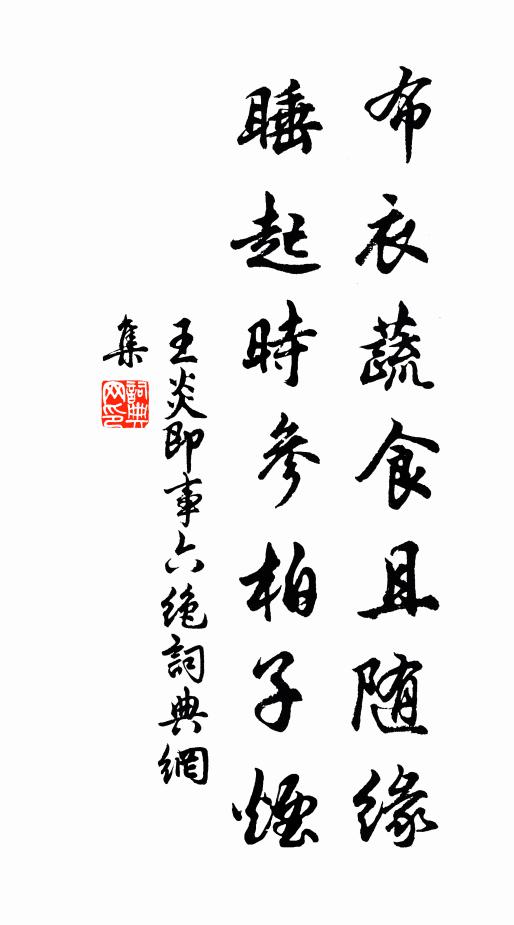 布衣蔬食且随緣
睡起時參柏子煙
王炎即事六絶詞典網
集
詞典网印